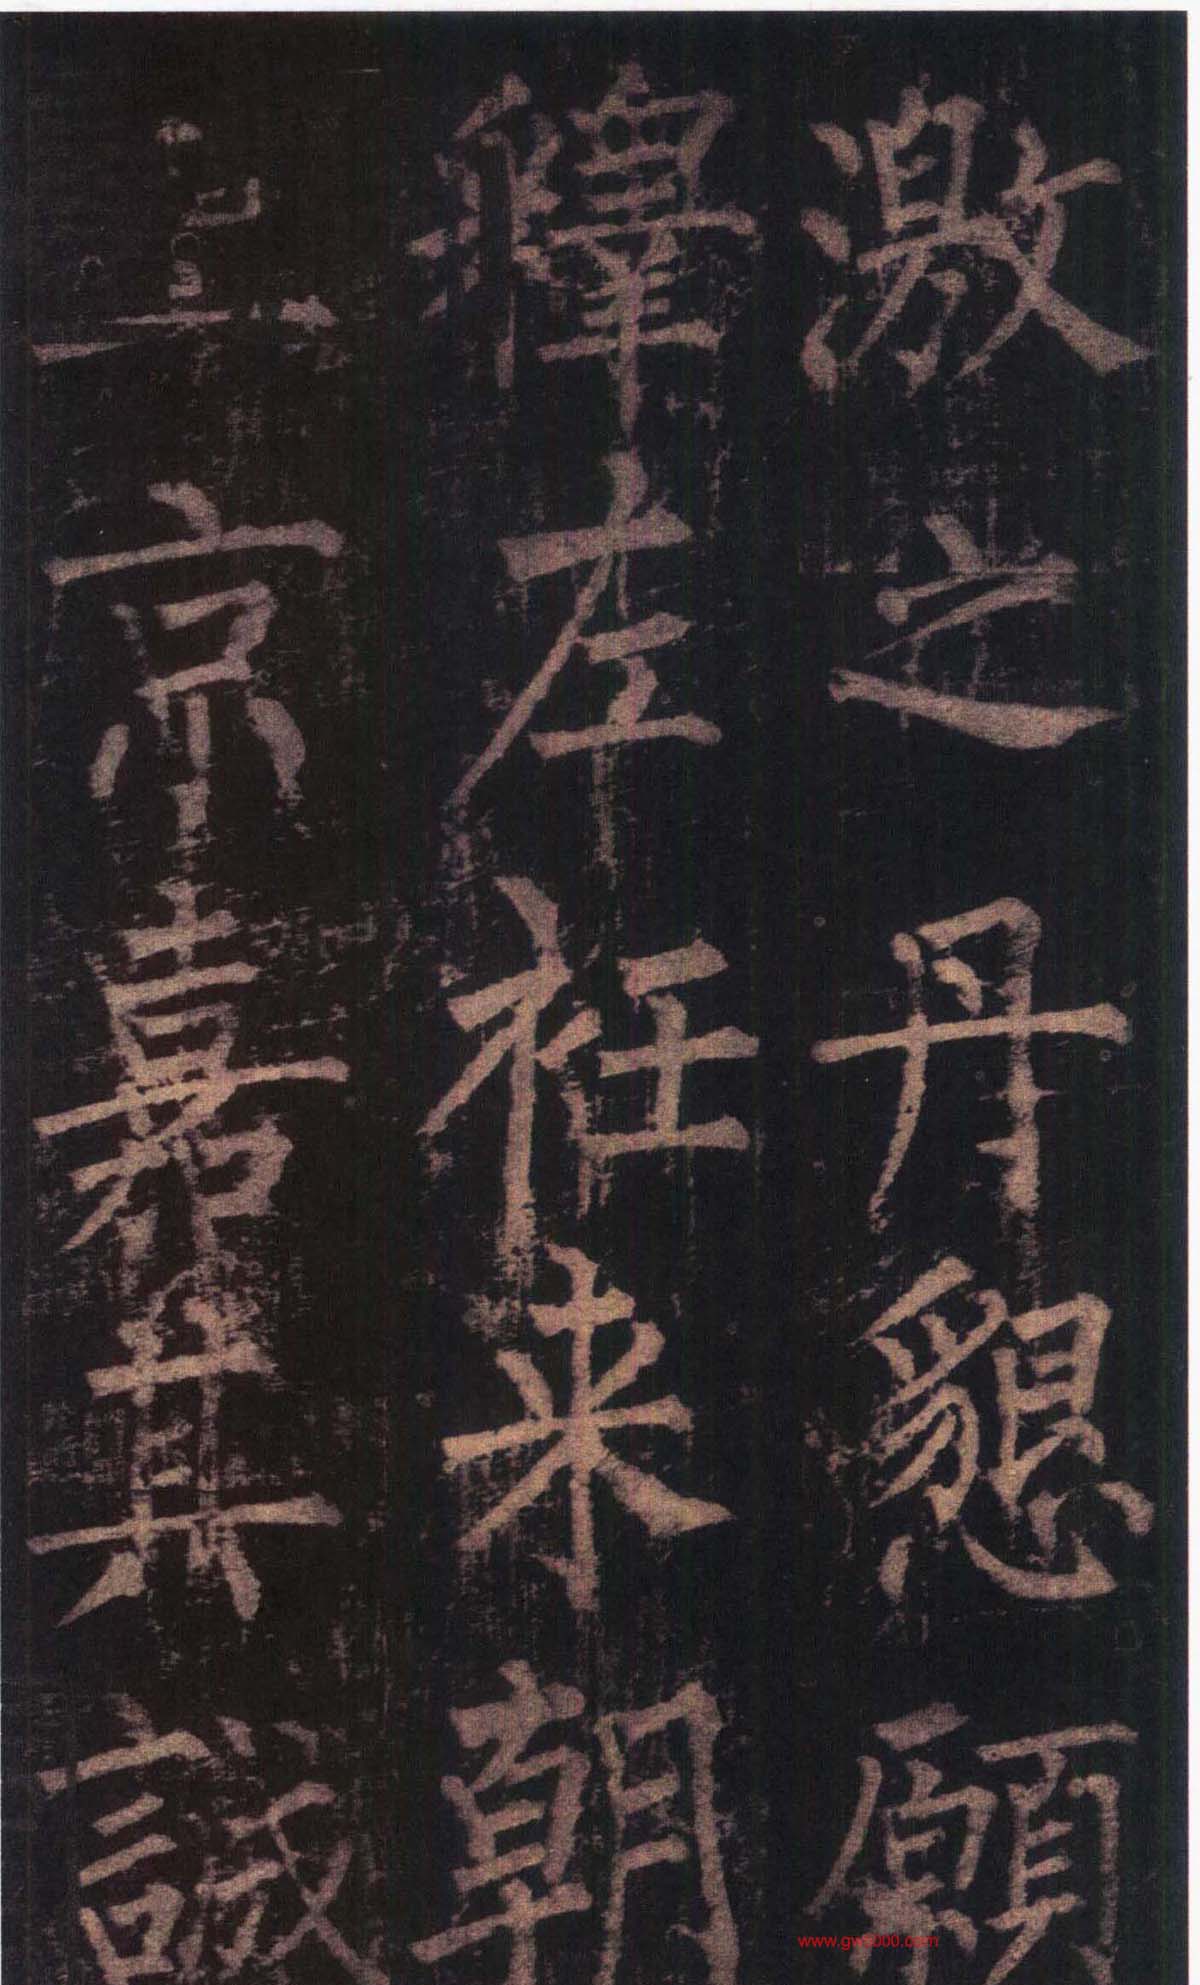 激之丹懇願
釋左衽来朝
上京嘉其誠
www.gwz000.com